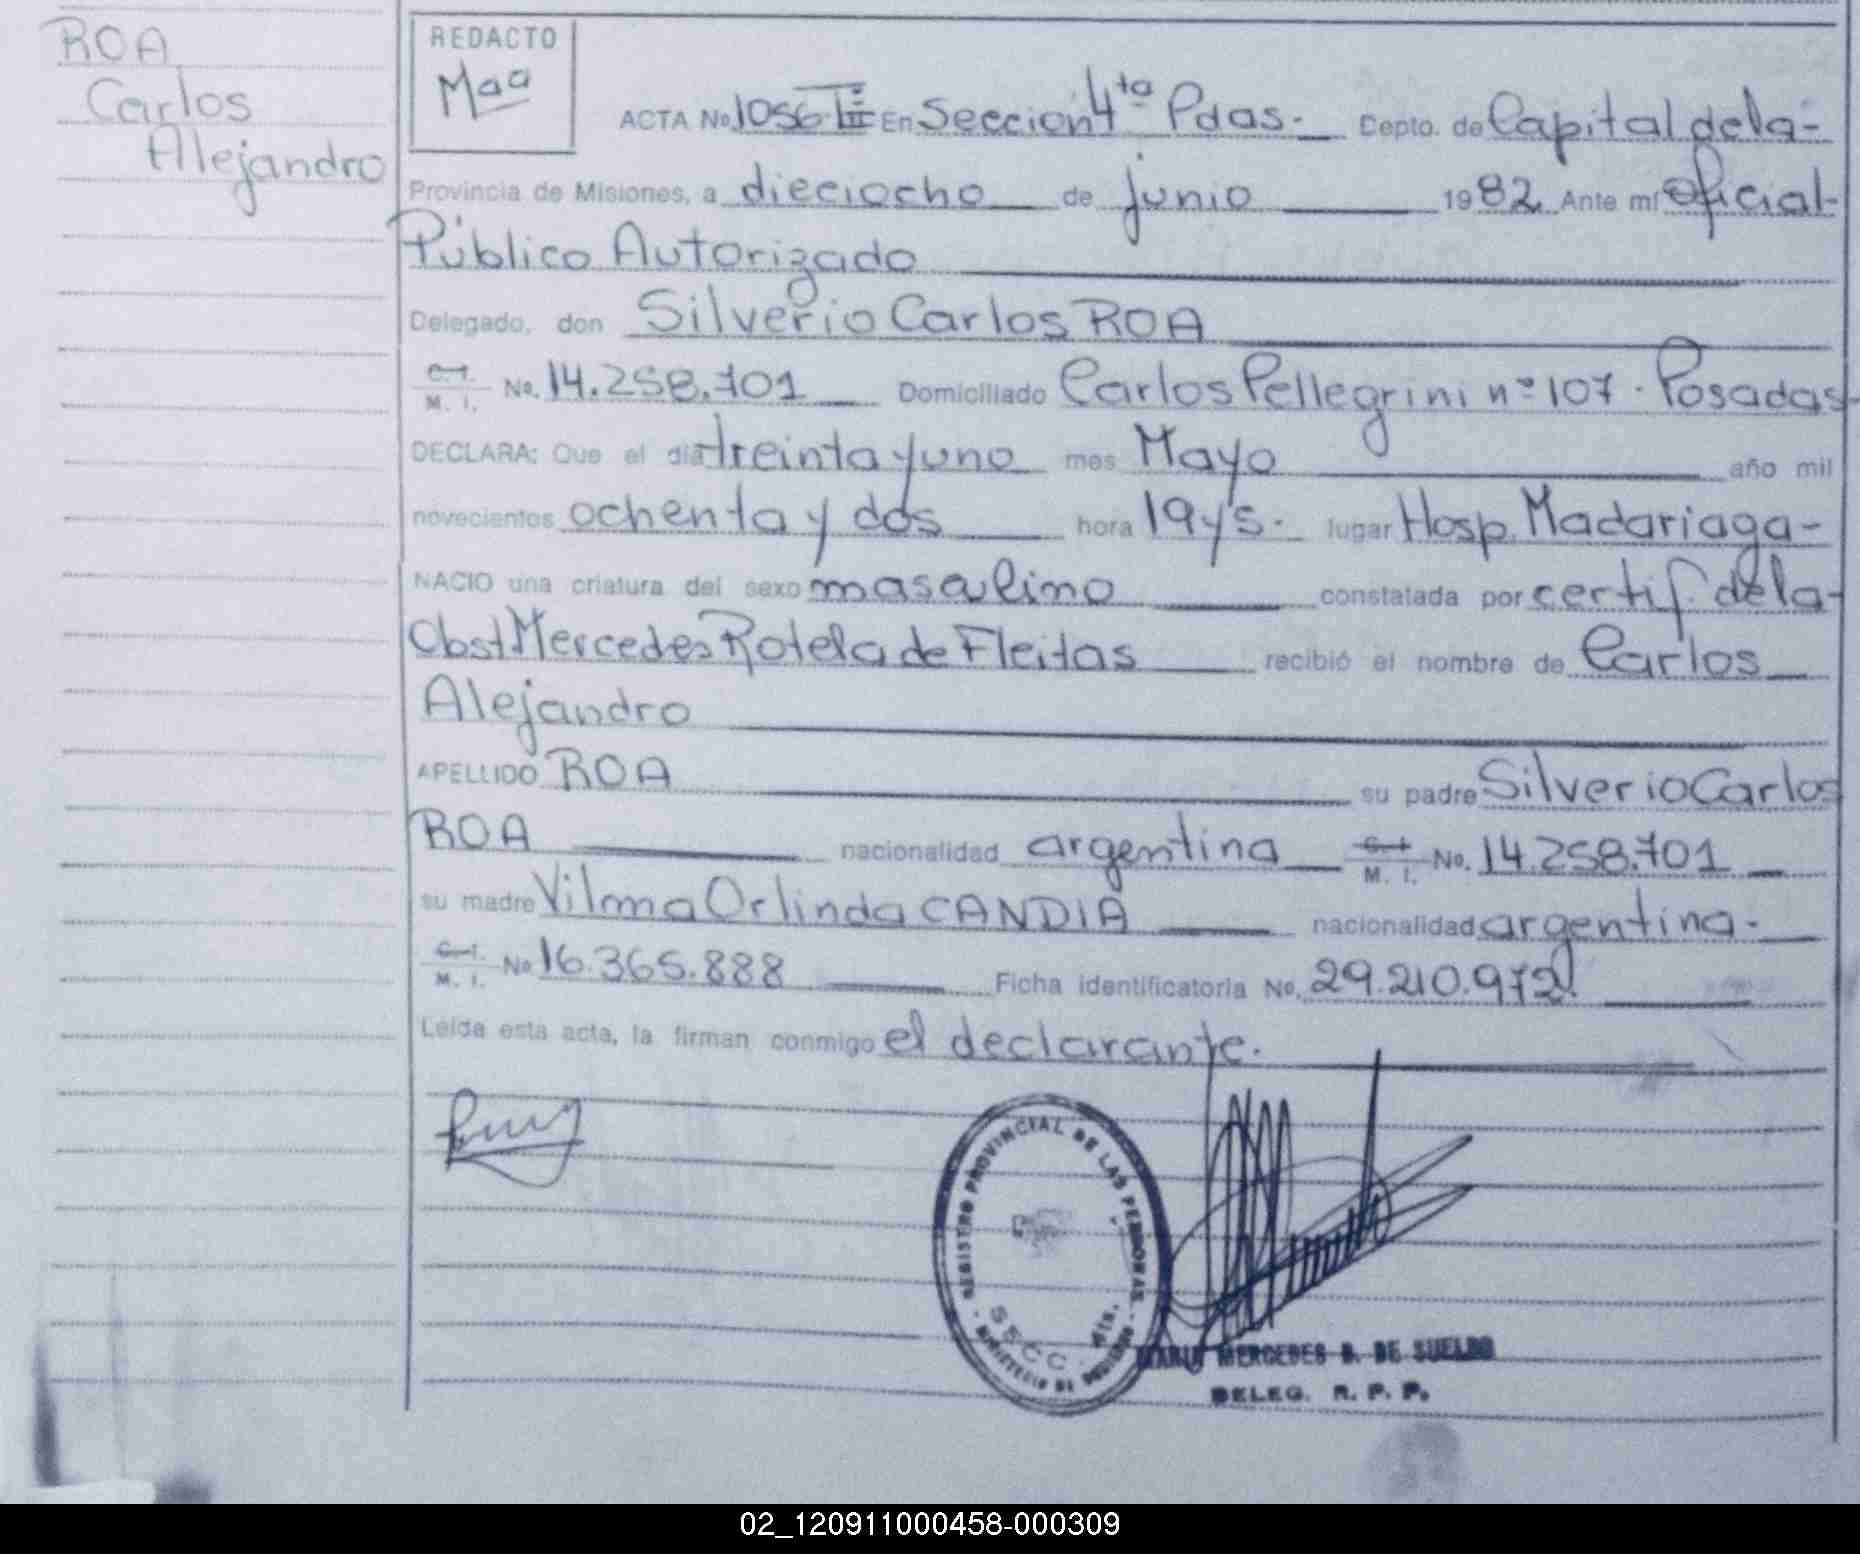 ROA
Carlos
Alejandro
REDACTO
Maa
ACTA No. 1056 III En Sección 4ta Pdas. Depto. de Capital de la
Provincia de Misiones, a dieciocho de junio 1982 Ante mí Oficial
Público Autorizado
Delegado, don Silverio Carlos ROA
C.I.
M. I. No. 14.258.701 Domiciliado Carlos Pellegrini nº 107 - Posadas
DECLARA: Que el día treinta y uno mes Mayo año mil
novecientos ochenta y dos hora 19 y 5. lugar Hosp. Madariaga-
NACIO una criatura del sexo masculino constatada por certif. de la-
Obst Mercedes Rotela de Fleitas recibió el nombre de Carlos
Alejandro
APELLIDO ROA su padre Silverio Carlos
ROA nacionalidad argentina C.I.
M. I. No. 14.258.701
su madre Vilma Orlinda CANDIA nacionalidad argentina.
C.I.
M. I. No 16.365.888 Ficha identificatoria No. 29.210.972
Leída esta acta, la firman conmigo el declarante.
REGISTRO PROVINCIAL DE LAS PERSONAS
SECC. 4ta.
MINISTERIO DE GOBIERNO
MARIA MERCEDES B. DE SUELDO
DELEG. R. P. P.
02_120911000458-000309